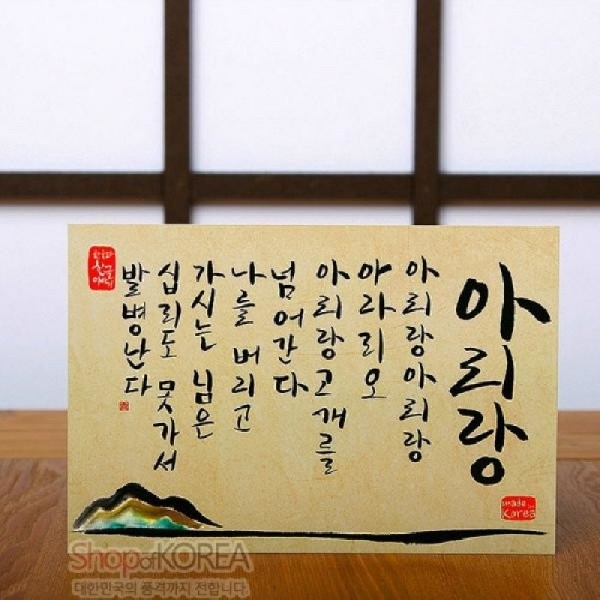 아리랑
아리랑아리랑
아라리오
아리랑고개를
넘어간다
나를 버리고
가시는 님은
십리도 못가서
발병난다
made in
Korea
Shop of KOREA
대한민국의 품격까지 전합니다.